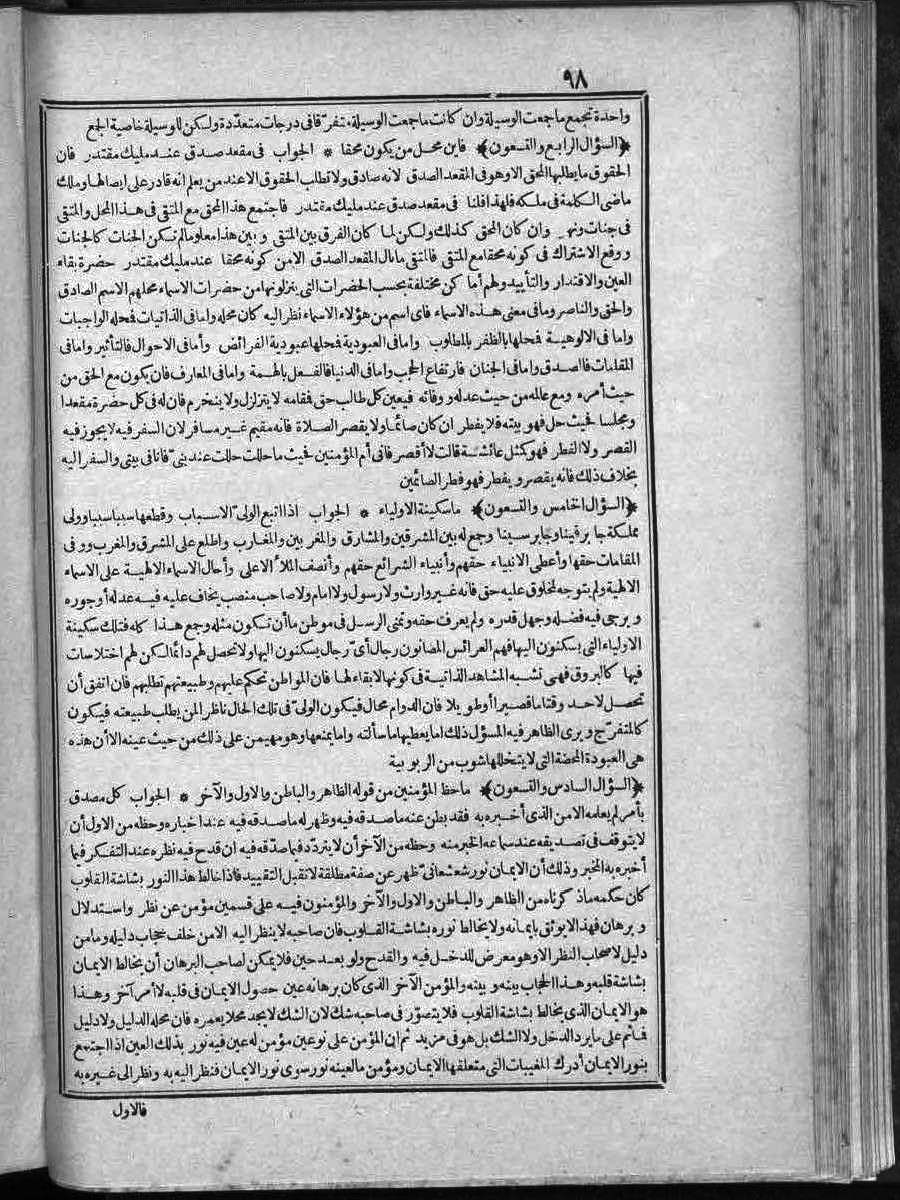 ٩٨
واحدة تجمع ما جمعت الوسيلة وان كانت ما جمعت الوسيلة متفرّقا فى درجات متعدّدة ولكن للوسيلة خاصية الجمع
﴿السؤال الرابع والتسعون﴾ فاين محل من يكون محقا * الجواب فى مقعد صدق عند مليك مقتدر فان
الحقوق ما يطلبها المحق الا وهو فى المقعد الصدق لانه صادق ولا تطلب الحقوق الا عند من يعلم انه قادر على ايصالها وملك
ماضى الكلمة فى ملكه فلهذا قلنا فى مقعد صدق عند مليك مقتدر فاجتمع هذا المحق مع المتقى فى هذا المحل والمتقى
فى جنات ونهر وان كان المحق كذلك ولكن لما كان الفرق بين المتقى و بين هذا معلوما لم تكن الجنات كالجنات
ووقع الاشتراك فى كونه محقا مع المتقى فالمتقى ما نال المقعد الصدق الا من كونه محقا عند مليك مقتدر حضرة بقاء
العين والاقتدار والتأييد ولهم أما كن مختلفة بحسب الحضرات التى ينزلونها من حضرات الاسماء محلهم الاسم الصادق
والحق والناصر وما فى معنى هذه الاسماء فاى اسم من هؤلاء الاسماء نظر اليه كان محله واما فى الذاتيات فحله الواجبات
واما فى الالوهية فحلها بالظفر بالمطلوب واما فى العبودية فحلها عبودية الفرائض وأما فى الاحوال فالتأثير واما فى
المقامات فالصدق واما فى الجنان فارتفاع الحجب واما فى الدنيا فالفعل بالهمة واما فى المعارف فان يكون مع الحق من
حيث أمره ومع عالمه من حيث عدله ووفائه فيعين كل طالب حق فقامه لا يتزلزل ولا ينخرم فان له فى كل حضرة مقعدا
ومجلسا فحيث حل فهو بيته فلا يفطر ان كان صائما ولا يقصر الصلاة فانه مقيم غير مسافر لان السفر فيه لا يجوز فيه
القصر ولا الفطر فهو كمثل عائشة قالت لا أقصر فانى أم المؤمنين فحيث ما حللت حللت عند بنىّ فانا فى بيتى والسفر اليه
بخلاف ذلك فانه يقصر و يفطر فهو فطر الصائمين
﴿السؤال الخامس والتسعون﴾ ما سكينة الاولياء * الجواب اذا اتبع الولىّ الاسباب وقطعها سببا سببا وولى
مملكة جابرقينا وجابرسينا وجمع له بين المشرقين والمشارق والمغر بين والمغارب واطلع على المشرق والمغرب ووفى
المقامات حقها وأعطى الانبياء حقهم وأنبياء الشرائع حقهم وأنصف الملأ الاعلى وأحال الاسماء الالهية على الاسماء
الالهية ولم يتوجه لمخلوق عليه حق فانه غير وارث ولا رسول ولا امام ولا صاحب منصب يخاف عليه فيه عدله أوجوره
و يرجى فيه فضله وجهل قدره ولم يعرف حقه وتمنى الرسل فى موطن ما أن تكون مثله وجمع هذا كله فتلك سكينة
الاولياء التى يسكنون اليها فهم العرائس المصانون رجال أىّ رجال يسكنون اليها ولا تحصل لهم دائما لكن لهم اختلاسات
فيها كالبروق فهى تشبه المشاهد الذاتية فى كونها لا بقاء لها فان المواطن تحكم عليهم وطبيعتهم تطلبهم فان اتفق أن
تحصل لاحد وقتا ما قصيرا أو طويلا فان الدوام محال فيكون الولىّ فى تلك الحال ناظرا لمن يطلب طبيعته فيكون
كالمتفرّج ويرى الظاهر فيه المسؤل ذلك اما يعطيها ما سألته واما يمنعها وهو مهيمن على ذلك من حيث عينه الا أن هذه
هى العبودة المحضة التى لا يتخللها شوب من الربوبية
﴿السؤال السادس والتسعون﴾ ما حظ المؤمنين من قوله الظاهر والباطن والاول والآخر * الجواب كل مصدق
بأمر لم يعلمه الا من الذى أخبره به فقد بطن عنه ما صدقه فيه وظهر له ما صدقه فيه عند اخباره وحظه من الاول أن
لا يتوقف فى تصديقه عند سماعه الخبر منه وحظه من الآخر أن لا يتردّد فيما صدّقه فيه ان قدح فيه نظره عند التفكر فيما
أخبره به المخبر وذلك أن الايمان نور شعشعانىّ ظهر عن صفة مطلقة لا تقبل التقييد فاذا خالط هذا النور بشاشة القلوب
كان حكمه ماذ كرناه من الظاهر والباطن والاول والآخر والمؤمنون فيه على قسمين مؤمن عن نظر واستدلال
و برهان فهذا لا يوثق بايمانه ولا يخالط نوره بشاشة القلوب فان صاحبه لا ينظر اليه الا من خلف حجاب دليله وما من
دليل لاصحاب النظر الا وهو معرض للدخل فيه والقدح ولو بعد حين فلا يمكن لصاحب البرهان أن يخالط الايمان
بشاشة قلبه وهذا الحجاب بينه و بينه والمؤمن الآخر الذى كان برهانه عين حصول الايمان فى قلبه لا أمر آخر وهذا
هو الايمان الذى يخالط بشاشة القلوب فلا يتصوّر فى صاحبه شك لان الشك لا يجد محلا يعمره فان محله الدليل ولا دليل
فاتم على ما يرد الدخل ولا الشك بل هو فى مزيد ثم ان المؤمن على نوعين مؤمن له عين فيه نور بذلك العين اذا اجتمع
بنور الايمان أدرك المغيبات التى متعلقها الايمان ومؤمن ما لعينه نور سوى نور الايمان فنظر اليه به ونظر الى غيره به
فالاول